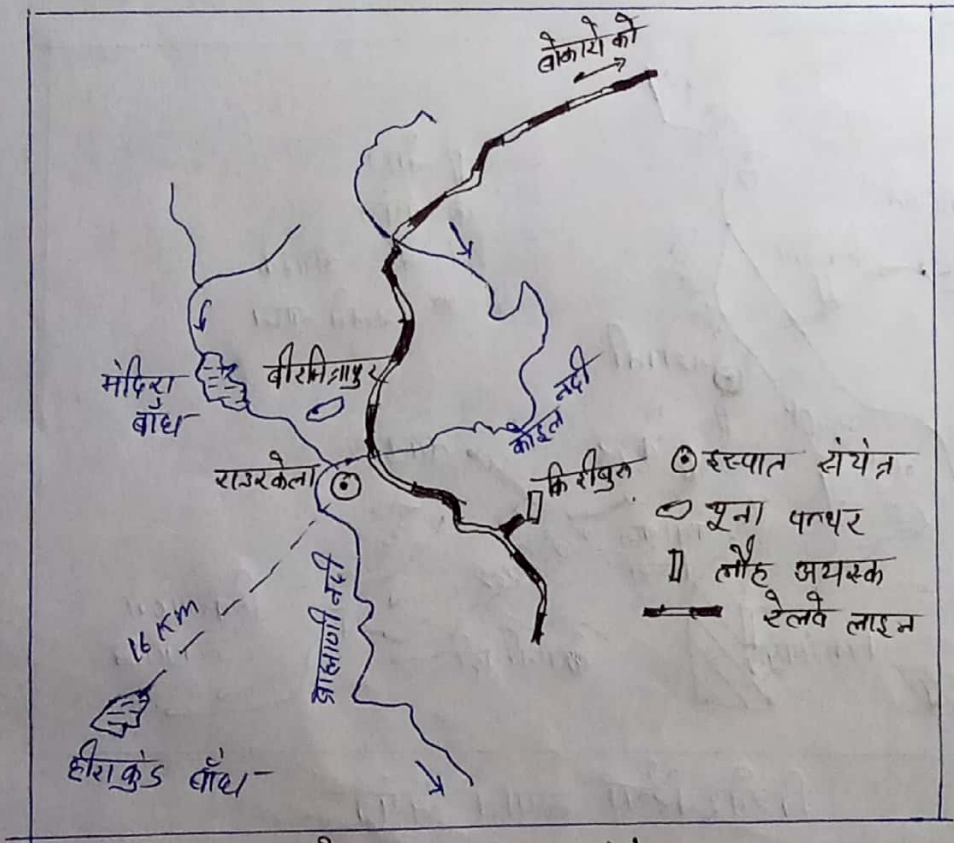 बोकारो को
मंदिरा
बाँध
बीरमित्रापुर
कोइल नदी
राउरकेला
किरीबुरु
इस्पात संयंत्र
चूना पत्थर
लौह अयस्क
रेलवे लाइन
ब्राह्मणी नदी
16 Km
हीराकुंड बाँध